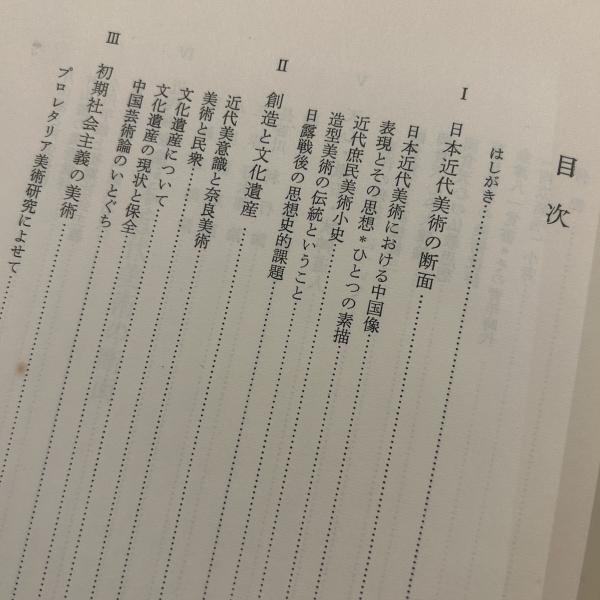 目次
はしがき
I 日本近代美術の断面
日本近代美術における中国像
表現とその思想*ひとつの素描
近代庶民美術小史
造型美術の伝統ということ
日露戦後の思想史的課題
II 創造と文化遺産
近代美意識と奈良美術
美術と民衆
文化遺産について
文化遺産の現状と保全
中国芸術論のいとぐち
III 初期社会主義の美術
プロレタリア美術研究によせて